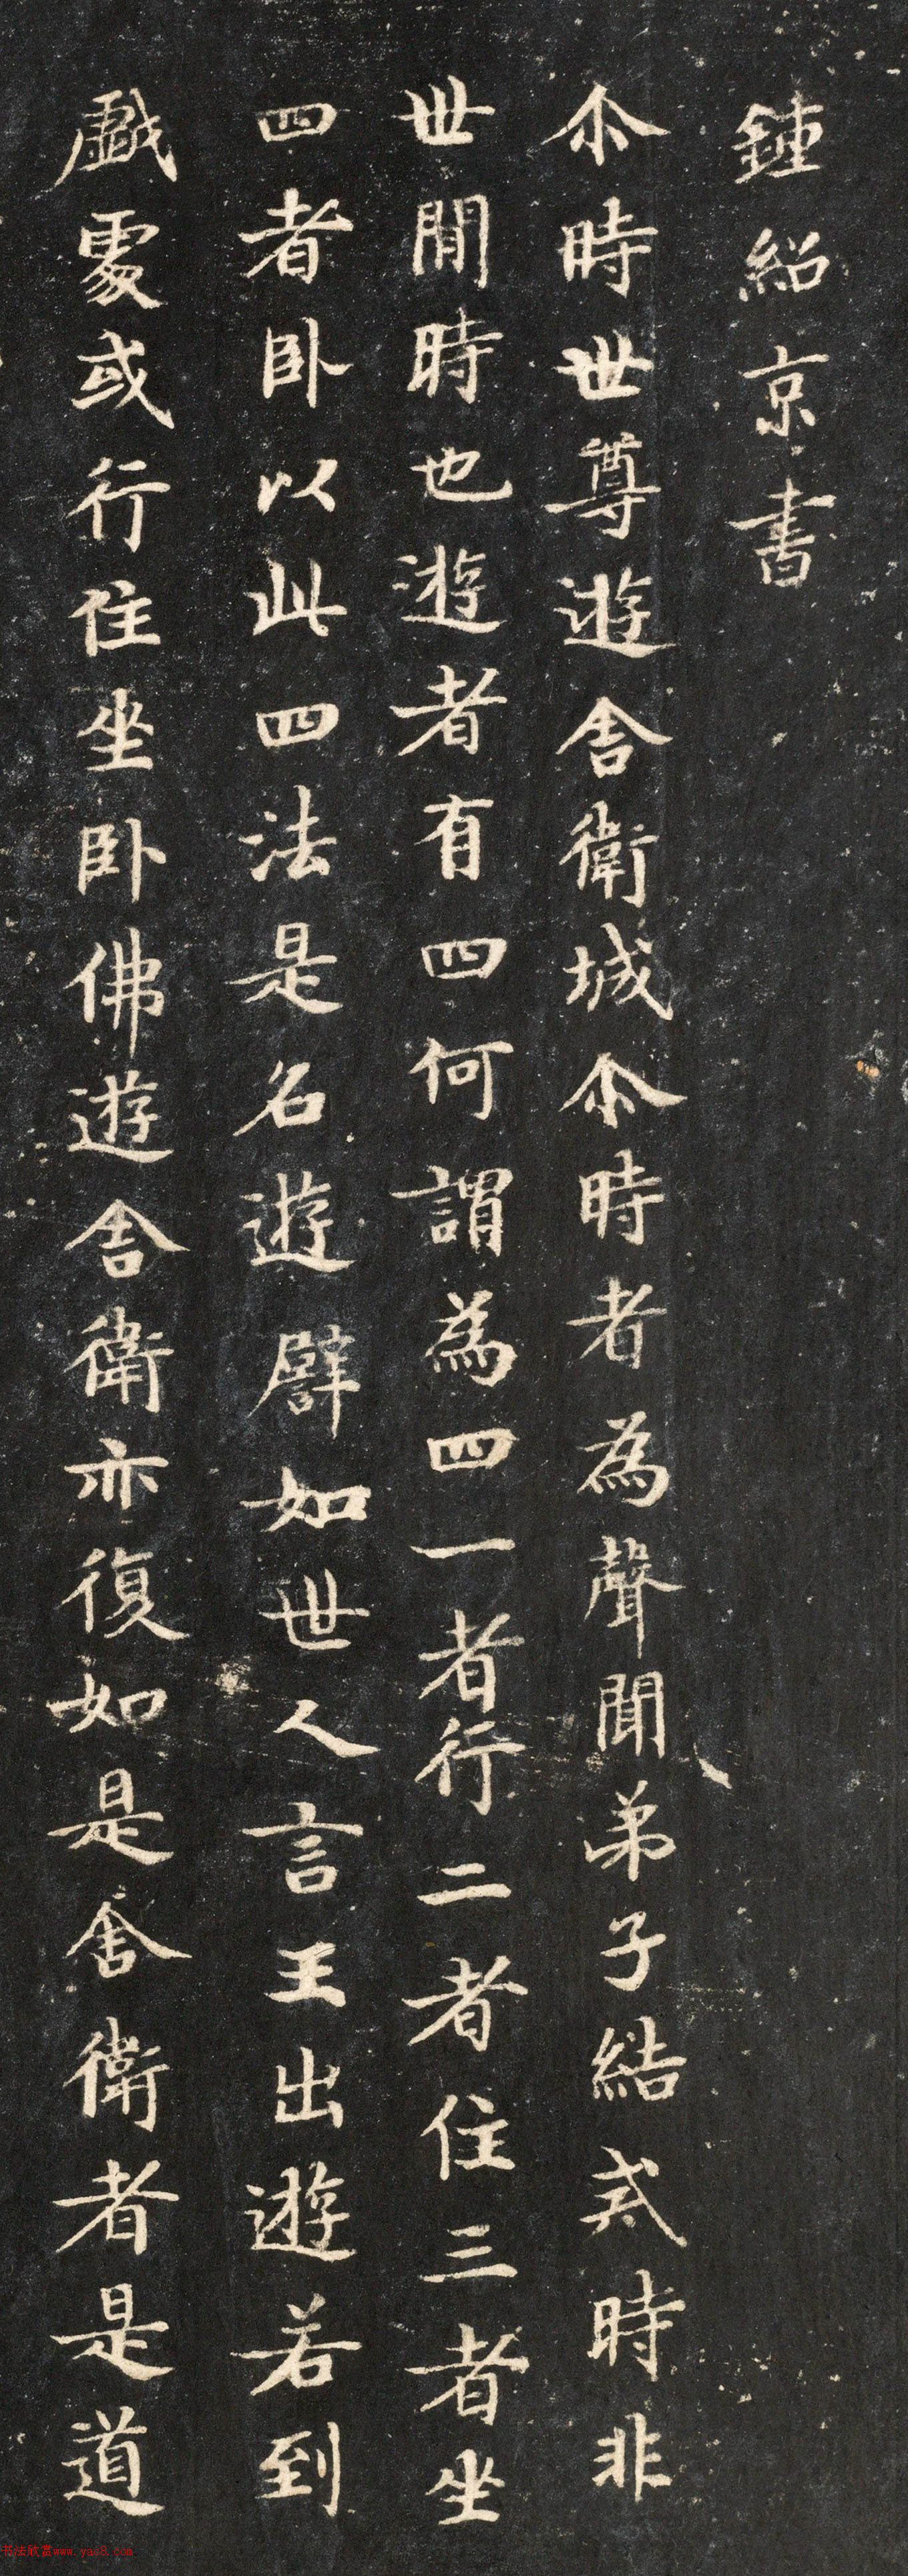 鍾紹京書
尒時世尊遊舍衛城尒時者為聲聞弟子結戒時非
世間時也遊者有四何謂為四一者行二者住三者坐
四者卧以此四法是名遊譬如世人言王出遊若到
戲處或行住坐卧佛遊舍衛亦復如是舍衛者是道
书法欣赏www.yac8.com